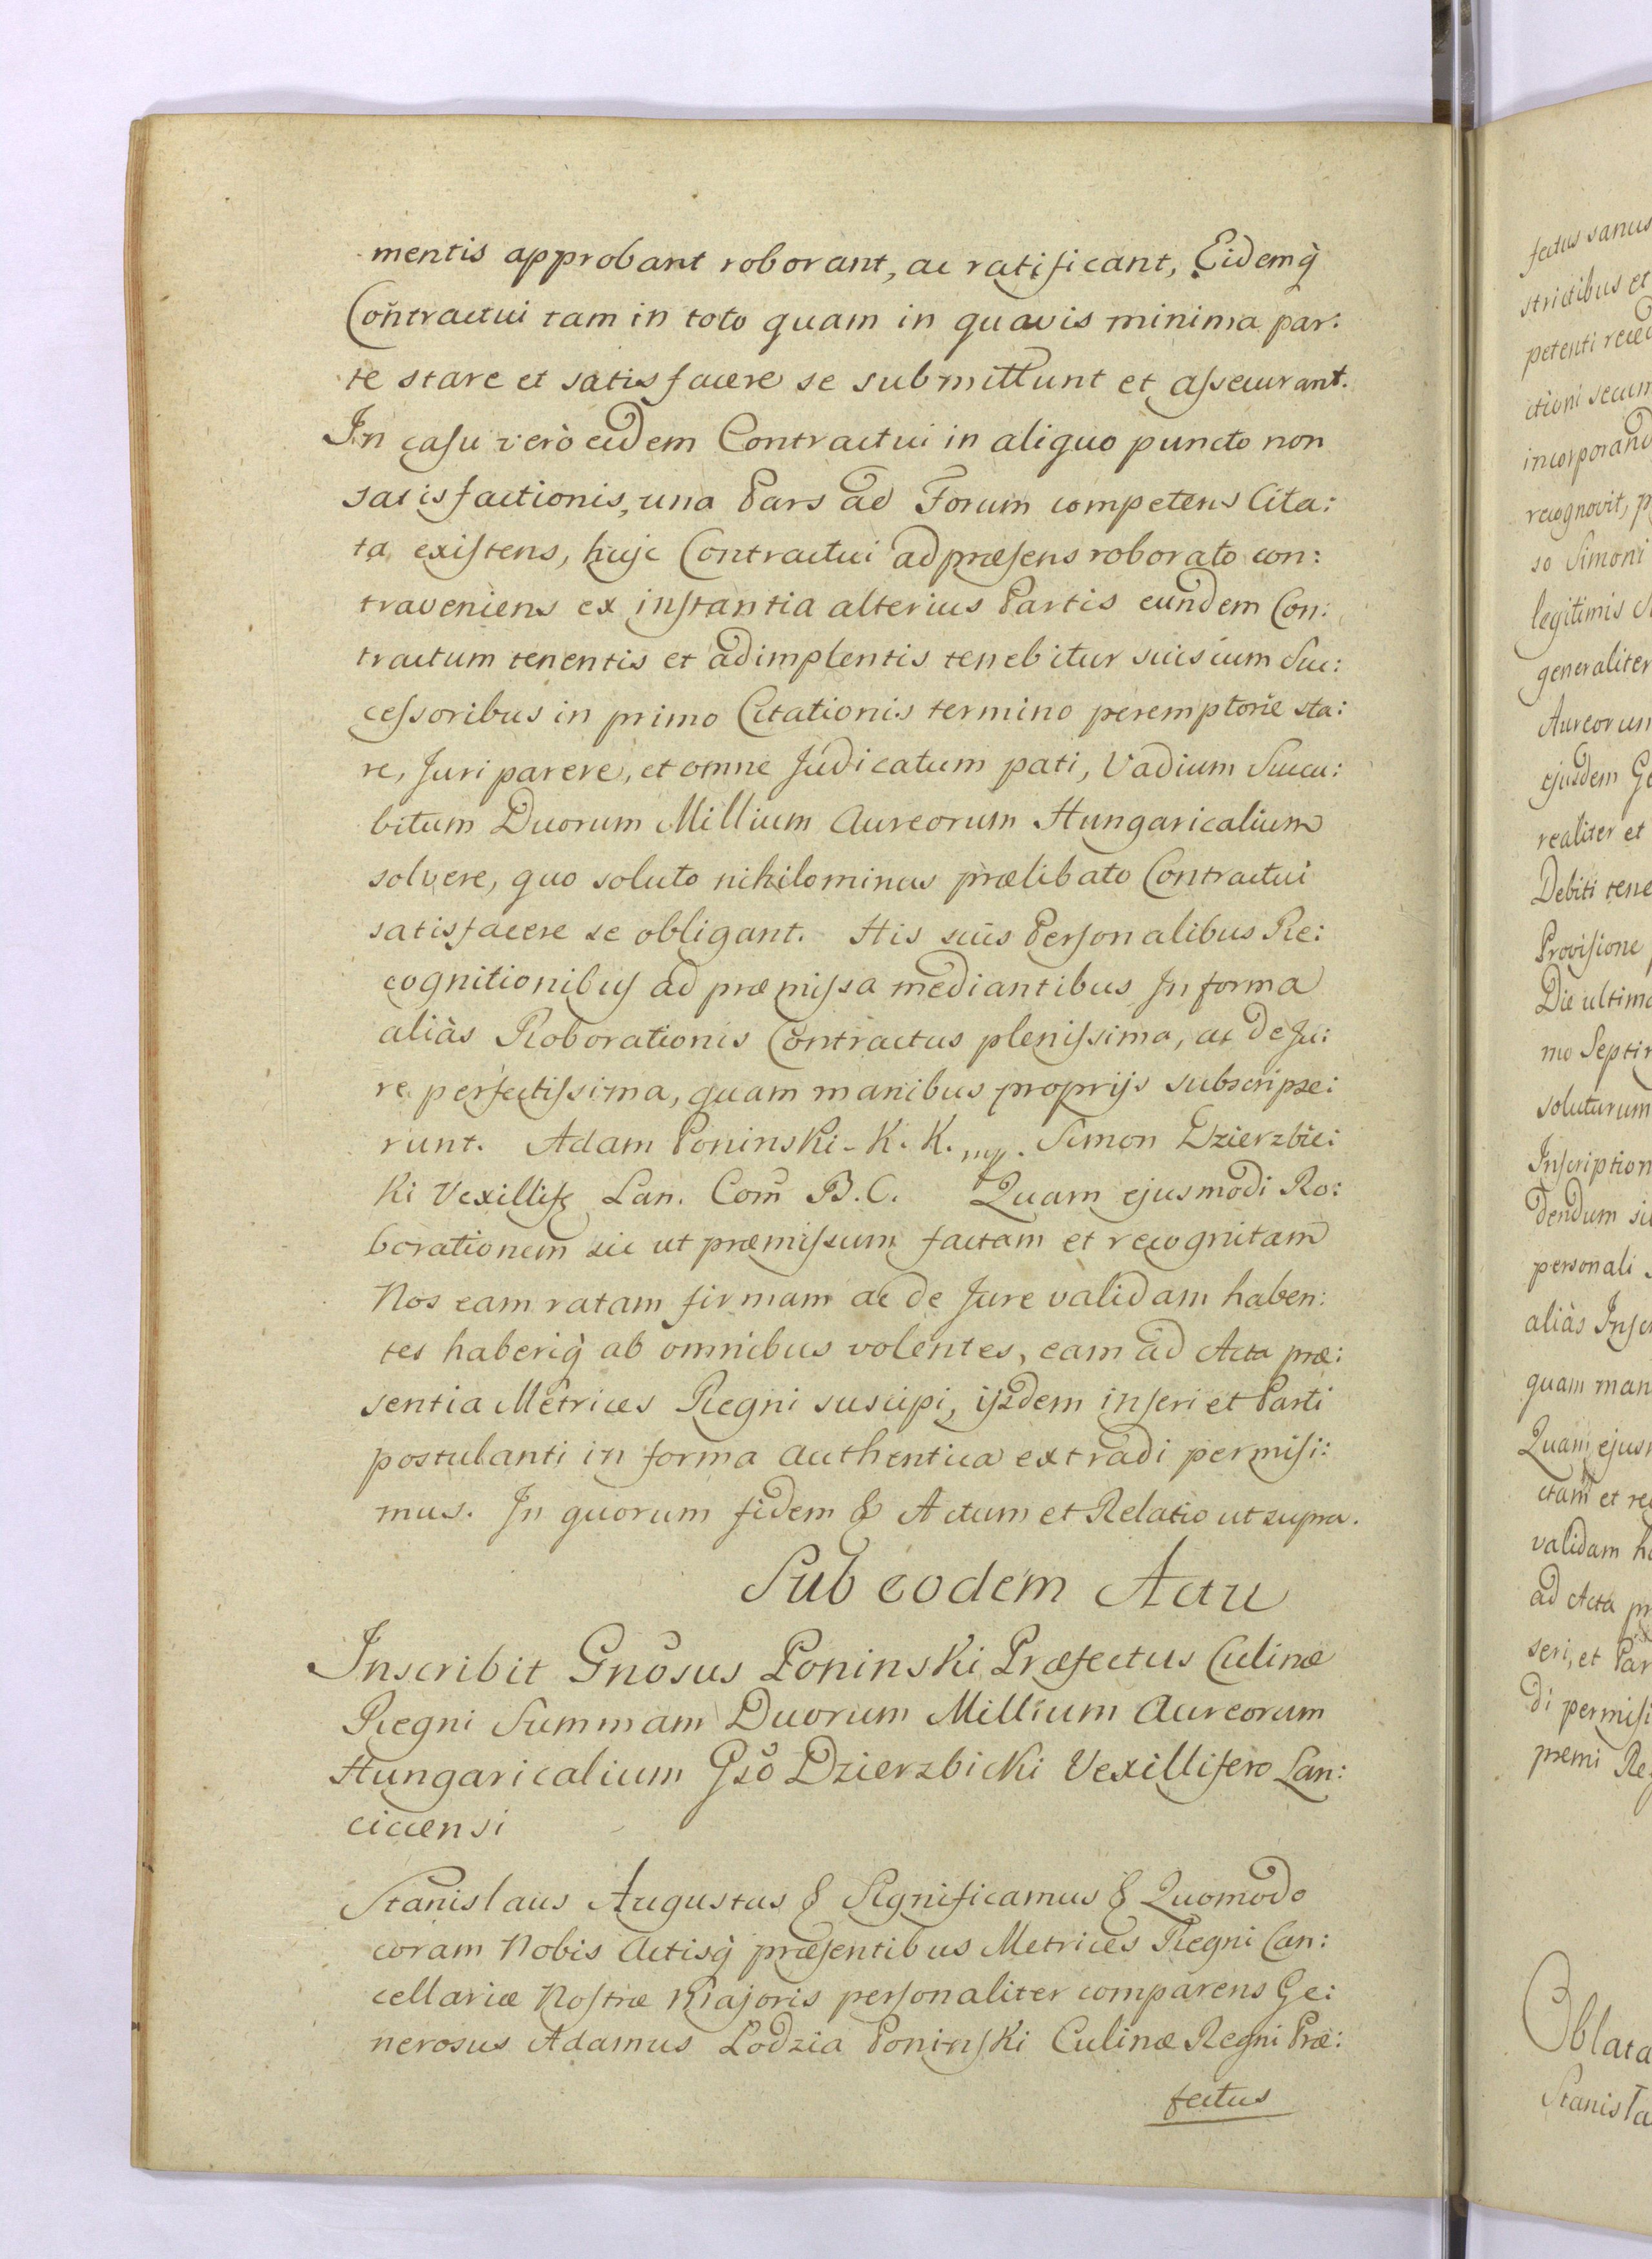 mentis approbant roborant, ac ratificant, Eidemq̀
Con̄tractui tam in toto quam in quavis minima par:
te stare et satisfacere se submittunt et aſsecurant.
In caſu verò eidem Contractui in aliquo puncto non
satisfactionis, una Pars ad Forum competens Cita:
ta exiſtens, huic Contractui ad præſens roborato con:
traveniens ex inſtantia alterius Partis eundem Con:
tractum tenentis et adimplentis tenebitur suis cum Suc:
ceſsoribus in primo Citationis termino peremptorie sta:
re, Juri parere, et omne Judicatum pati, Vadium Succu:
bitum Duorum Millium Aureorum Hungaricalium
solvere, quo soluto nihilominus prælibato Contractui
satisfacere se obligant. His suis Perſonalibus Re:
cognitionibus ad præmiſsa mediantibus In forma
aliàs Roborationis Contractus pleniſsima, ac de Ju:
re perfectiſsima, quam manibus proprijs subscripse:
runt. Adam Poninski - K. K. mp. Simon Dzierzbic:
ki Vexillif Lan. Com̄ B. C. Quam ejusmodi Ro:
borationem sic ut præmiſsum factam et recognitam
Nos eam ratam firmam ac de Jure validam haben:
tes haberiq̀ ab omnibus volentes, eam ad Acta præ:
sentia Metrices Regni suscipi, ijsdem inſeri et Parti
postulanti in forma authentica extradi permiſi:
mus. In quorum fidem & Actum et Relatio ut supra.
Sub eodem Actu
Inscribit Gnosus Poninski Præfectus Culinæ
Regni Summam Duorum Millium Aureorum
Hungaricalium Gso Dzierzbicki Vexillifero Lan:
ciciensi
Stanislaus Augustus & Significamus & Quomodo
coram Nobis Actisq̀ præſentibus Metrices Regni Can:
cellariæ Noſtræ Majoris perſonaliter comparens Ge:
nerosus Adamus Lodzia Poninſki Culinæ Regni Præ:
fectus
fectus sanus
strictibus et
petenti rece
ctioni secum
incorporand
recognovit, p
so Simoni
legitimis S
generaliter
Aureorum
ejusdem Ge
realiter et
Debiti tene
Proviſione
Die ultima
mo Septi
soluturum
Inſcription
dendum si
personali
aliàs Inſc
quam man
Quam ejus
ctam et re
validam h
ad Acta pr
seri, et Par
di permiſi
premi Re
Oblata
Stanisla